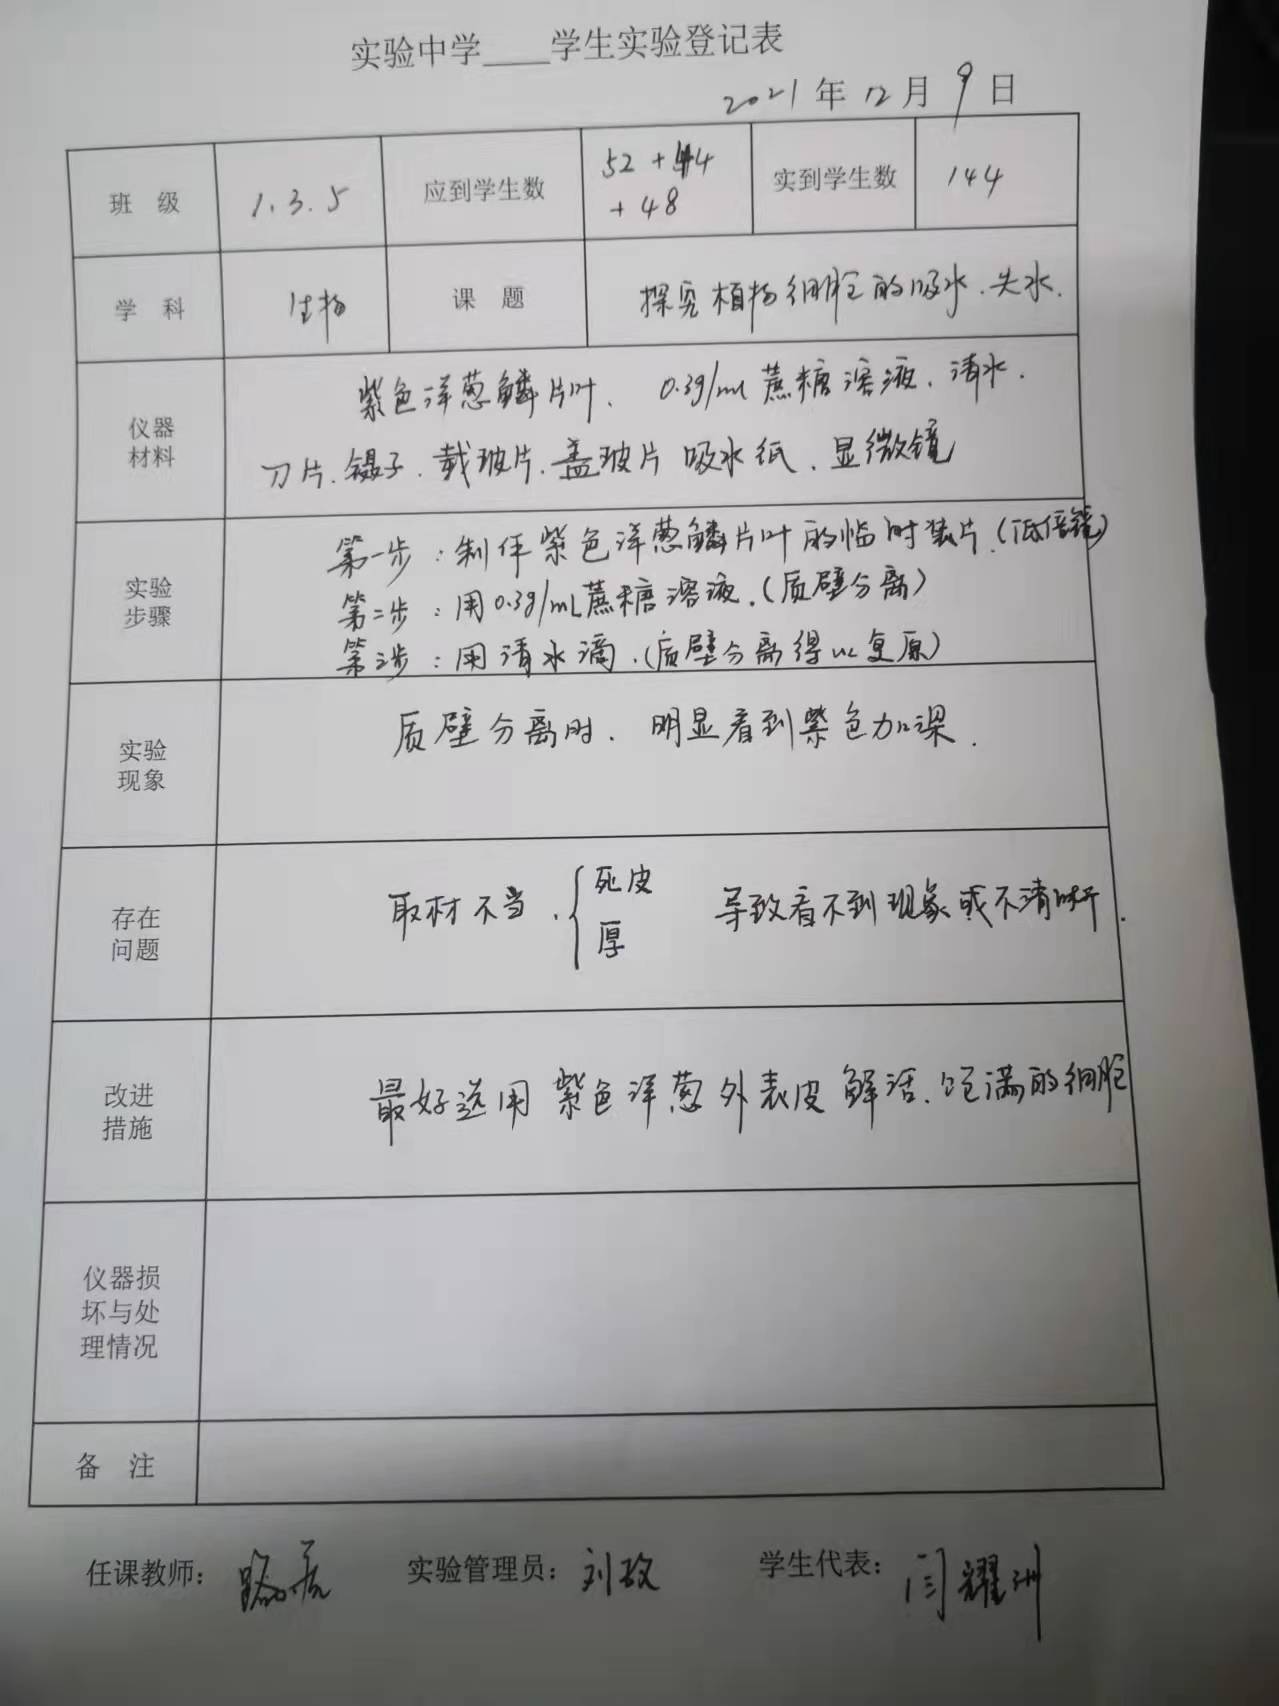 实验中学____学生实验登记表
2021 年 12 月 9 日
班 级 1.3.5 应到学生数 52 + 44 + 48 实到学生数 144
学 科 生物 课 题 探究植物细胞的吸水、失水.
仪器
材料
紫色洋葱鳞片叶、 0.3g/ml 蔗糖溶液、清水.
刀片、镊子、载玻片、盖玻片 吸水纸、显微镜
实验
步骤
第一步:制作紫色洋葱鳞片叶的临时装片.(低倍镜)
第二步:用0.3g/mL蔗糖溶液.(质壁分离)
第三步:用清水滴.(质壁分离得以复原)
实验
现象
质壁分离时. 明显看到紫色加深.
存在
问题
取材不当. { 死皮
厚
导致看不到现象或不清晰.
改进
措施
最好选用 紫色洋葱外表皮 鲜活、饱满的细胞
仪器损
坏与处
理情况
备 注
任课教师: 实验管理员: 刘政 学生代表: 闫耀洲